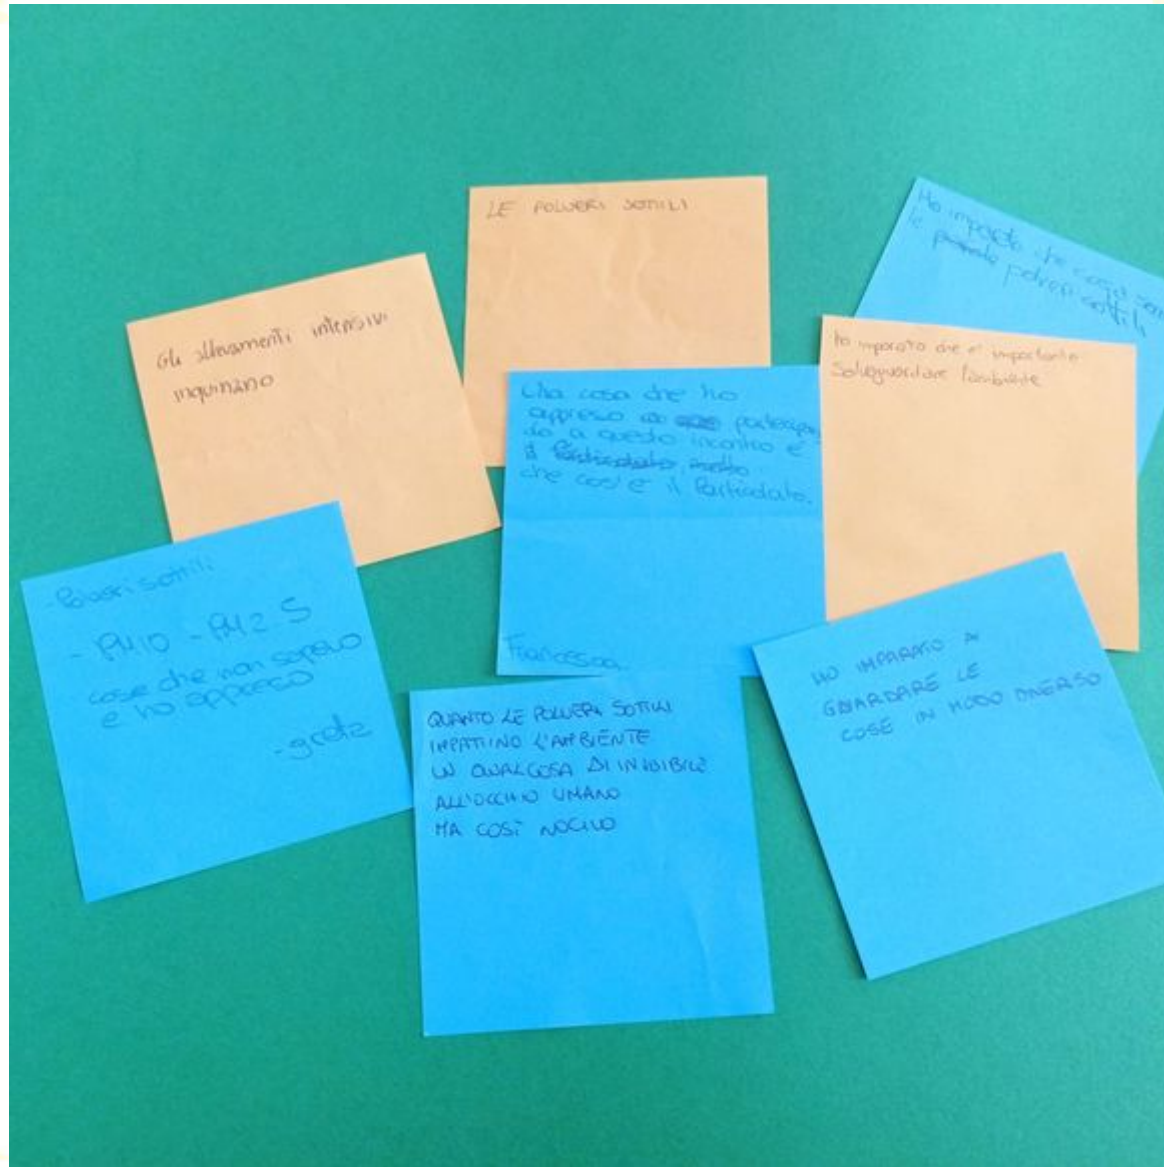 LE POLVERI SOTTILI
Ho imparato che cosa sono
le polveri sottili
Gli allevamenti intensivi
inquinano
ho imparato che e' importante
salvaguardare l'ambiente
Una cosa che ho
appreso partecipan
do a questo incontro è
che cos'è il Particolato.
Francesca
- Polveri sottili
- PM10 - PM2.5
cose che non sapevo
e ho appreso
- greta
QUANTO LE POLVERI SOTTILI
IMPATTINO L'AMBIENTE
UN QUALCOSA DI INVISIBILE
ALL'OCCHIO UMANO
MA COSÌ NOCIVO
HO IMPARATO A
GUARDARE LE
COSE IN MODO DIVERSO